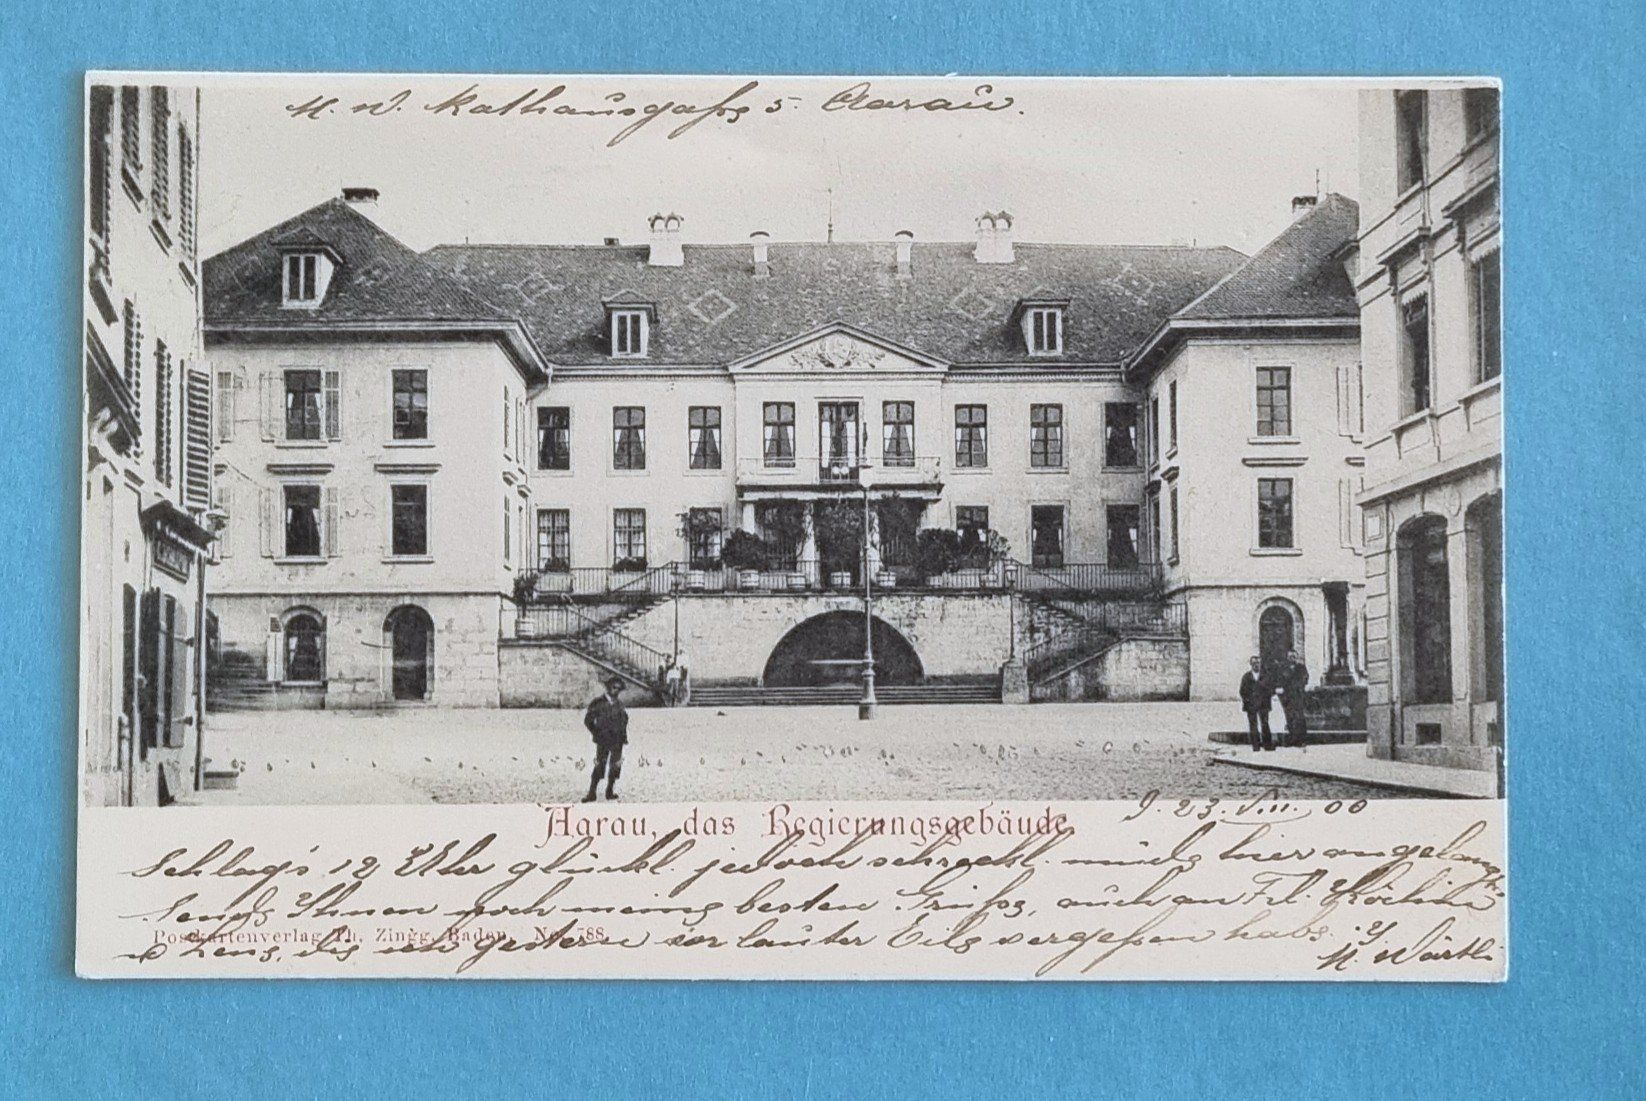 M. W. Rathausgasse 5. Aarau.
Aarau, das Regierungsgebäude
23. VIII. 00
Schlag's 12 Uhr glückl. jedoch schreckl. müde hier angelangt
sende Ihnen noch meine besten Grüße, auch an Frl. Köchin
Postkartenverlag Th. Zingg, Baden. No. 788.
Lenz, die ich gestern vor lauter Eile vergeßen habe.
M. Wärtli